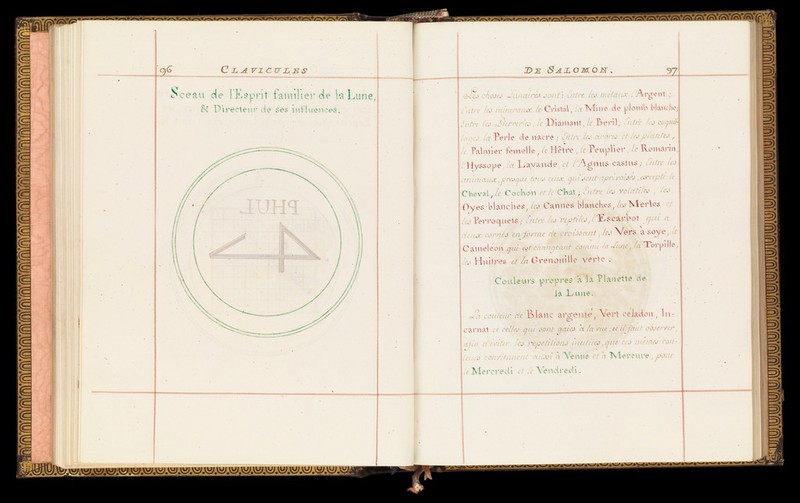 96
CLAVICULES
Sceau de l'Esprit familier de la Lune,
& Directeur de ses influences.
PHUL
DE SALOMON.
97
Les choses Lunaires sont: Entre les métaux l'Argent;
Entre les mineraux le Cristal, la Mine de plomb blanche;
Entre les Pierreries, le Diamant, le Beril, Entre les
la Perle de nacre; Entre les arbres et les plantes,
le Palmier femelle, le Hêtre, le Peuplier, le Romarin,
l'Hyssope, la Lavande et l'Agnus castus; Entre les
animaux, presque tous ceux qui sont aprivoisés, excepté le
Cheval, le Cochon et le Chat; Entre les volatiles, les
Oyes blanches, les Cannes blanches, les Merles et
les Perroquets; Entre les reptiles, l'Escarbot qui a
deux cornes en forme de croissant, les Vers à soye, le
Cameleon qui est changeant comme la Lune, la Torpille,
les Huitres et la Grenouille verte.
Couleurs propres à la Planette de
la Lune.
La couleur de Blanc argenté, Vert celadon, In-
carnat et celles qui sont gaies à la vue; et il faut observer,
afin d'éviter les repetitions inutiles, que les mêmes cou-
leurs conviennent aussi à Venus et à Mercure, pour
le Mercredi et le Vendredi.